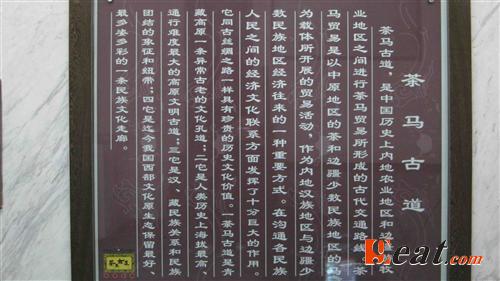 茶马古道
茶马古道，是中国历史上内地农业地区和边疆牧
业地区之间进行茶马贸易所形成的古代交通路线。茶
马贸易是以中原地区的茶和边疆少数民族地区的马
为载体所开展的贸易活动，作为内地汉族地区与边疆少
数民族地区经济往来的一种重要方式。在沟通各民族
人民之间的经济文化联系方面发挥了十分巨大的作用。
它同古丝绸之路一样具有珍贵的历史文化价值。一茶马古道是青
藏高原一条异常古老的文化孔道；二它是人类历史上海拔最高、
通行难度最大的高原文明古道；三它是汉、藏民族关系和民族
团结的象征和纽带；四它是迄今我国西部文化原生态保留最好、
最多姿多彩的一条民族文化走廊。
8eat.com